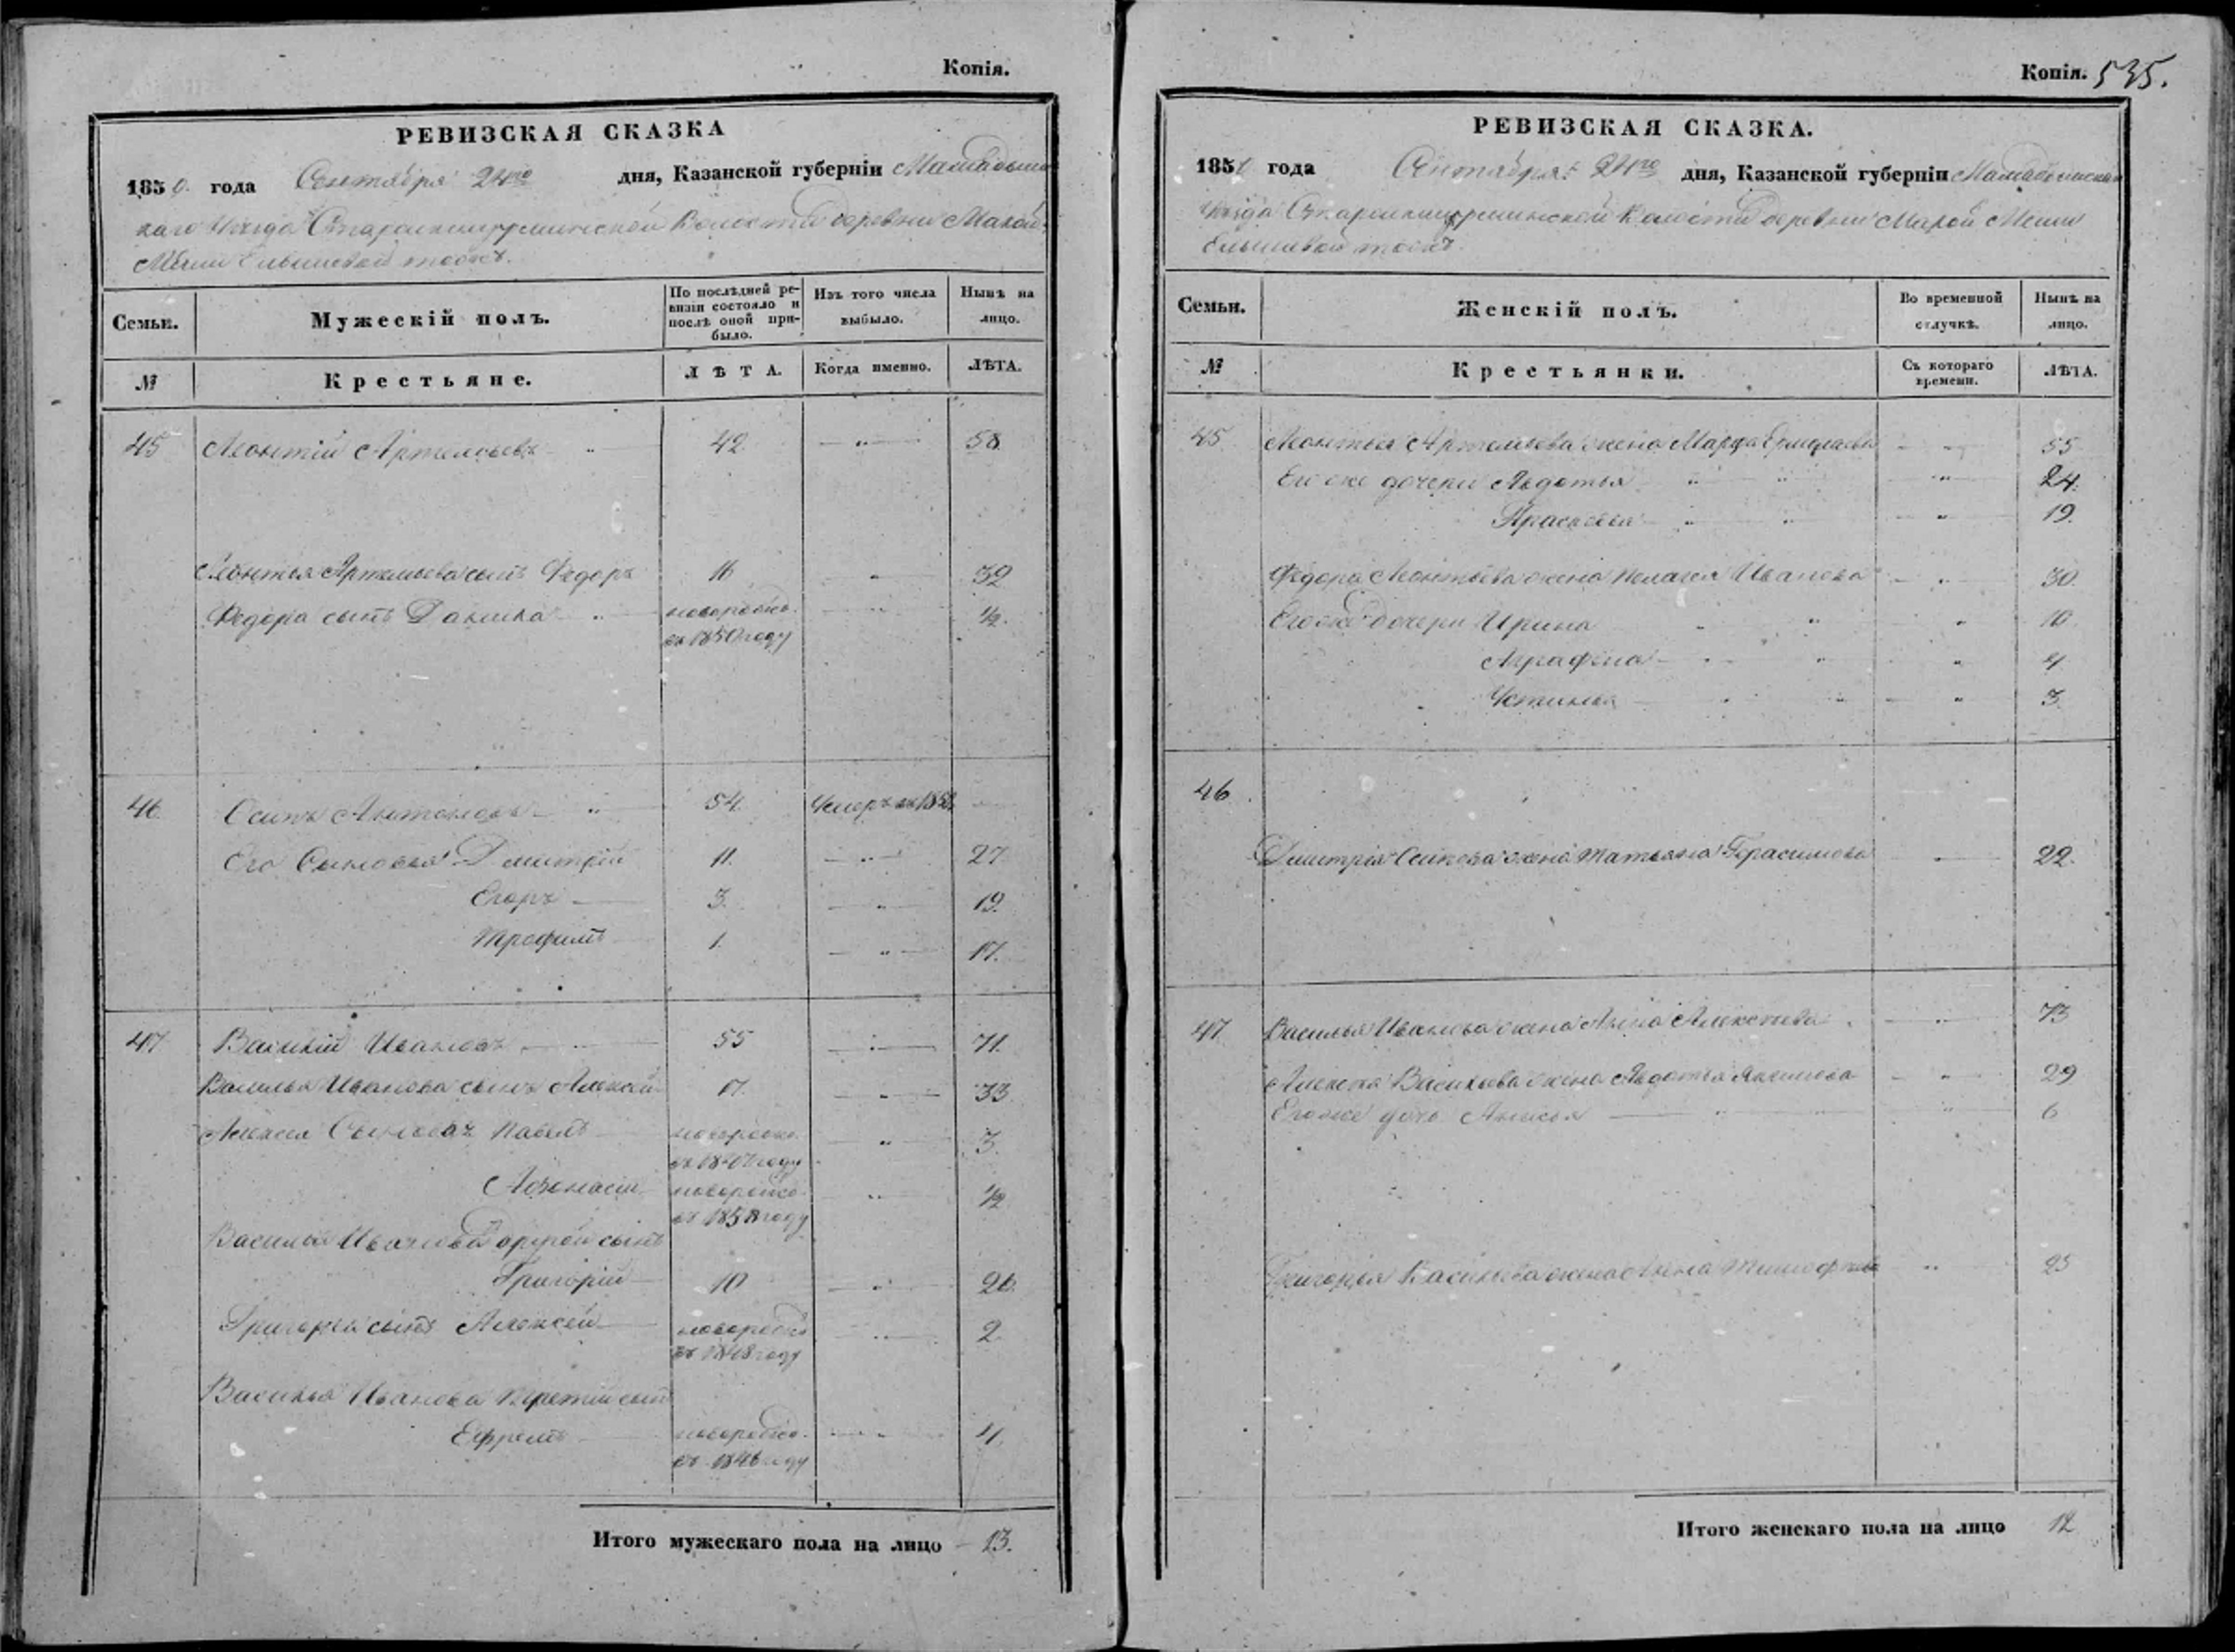 Копія.
РЕВИЗСКАЯ СКАЗКА
1850 года Сентября 24го дня, Казанской губерніи Мамадышс
каго Уѣзда Волости деревни Малой
Меши тожъ.
Семьи.
Мужескій полъ.
По послѣдней ре-
визіи состояло и
послѣ оной при-
было.
Изъ того числа
выбыло.
Нынѣ на
лицо.
№
Крестьяне.
ЛѢТА.
Когда именно.
ЛѢТА.
45 Леонтій Артемьевъ 42 58
Леонтья Артемьева сынъ Федоръ 16 32
Федора сынъ Данила новорожд. 1/2
въ 1850 году
46 Осипъ Антоновъ 54. Умеръ въ
Его Сыновья Дмитрій 11. 27
Егоръ 3. 19.
Трофимъ 1. 17.
47 Василій Ивановъ 55 71.
Василья Иванова сынъ Алексей 17. 33
Алексея Сыновья Павелъ новорожд. 3.
въ 1847 году
Афонасій новорожд. 1/2
въ 1850 году
Василья Иванова другой сынъ
Григорій 10 26.
Григорья сынъ Алексей новорожд. 2.
въ 1848 году
Василья Иванова третій сынъ
Ефремъ новорожд. 4.
въ 1846 году
Итого мужескаго пола на лицо 13.
Копія. 535.
РЕВИЗСКАЯ СКАЗКА.
1850 года Сентября 24го дня, Казанской губерніи Мамадышскаго
Уѣзда Волости деревни Малой Меши
тожъ.
Семьи.
Женскій полъ.
Во временной
отлучкѣ.
Нынѣ на
лицо.
№
Крестьянки.
Съ котораго
времени.
ЛѢТА.
45 Леонтья Артемьева жена Марфа 55
Его же дочери Авдотья 24.
Прасковья 19.
Федора Леонтьева жена Пелагея Иванова 30.
Его же дочери Ирина 10
Аграфена 4
Устинья 3.
46
Дмитрія Осипова жена Татьяна Герасимова 22.
47 Василья Иванова жена Анна Алексеева 73
Алексея Васильева жена Авдотья Акимова 29
Его же дочь Анисья 6
Григорья Васильева жена Анна Тимофеева 25
Итого женскаго пола на лицо 12